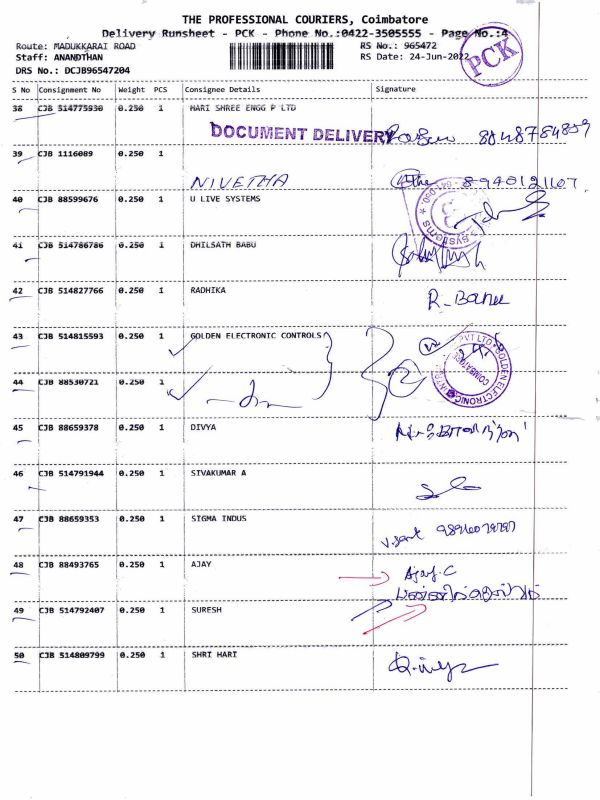 THE PROFESSIONAL COURIERS, Coimbatore
Delivery Runsheet - PCK - Phone No.:0422-3505555 - Page No.:4
Route: MADUKKARAI ROAD RS No.: 965472
Staff: ANANDTHAN RS Date: 24-Jun-2022
DRS No.: DCJB96547204
PCK
S No Consignment No Weight PCS Consignee Details Signature
38 CJB 514775930 0.250 1 HARI SHREE ENGG P LTD
DOCUMENT DELIVERY
39 CJB 1116089 0.250 1
NIVETHA
40 CJB 88599676 0.250 1 U LIVE SYSTEMS
41 CJB 514786786 0.250 1 DHILSATH BABU
42 CJB 514827766 0.250 1 RADHIKA R-Banu
43 CJB 514815593 0.250 1 GOLDEN ELECTRONIC CONTROLS
44 CJB 88530721 0.250 1
GOLDEN ELECTRONIC PVT LTD COIMBATORE
45 CJB 88659378 0.250 1 DIVYA
46 CJB 514791944 0.250 1 SIVAKUMAR A
47 CJB 88659353 0.250 1 SIGMA INDUS
48 CJB 88493765 0.250 1 AJAY Ajay.C
49 CJB 514792407 0.250 1 SURESH
50 CJB 514809799 0.250 1 SHRI HARI